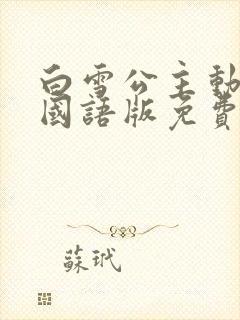 白雪公主動
國語版免費
蘇玳